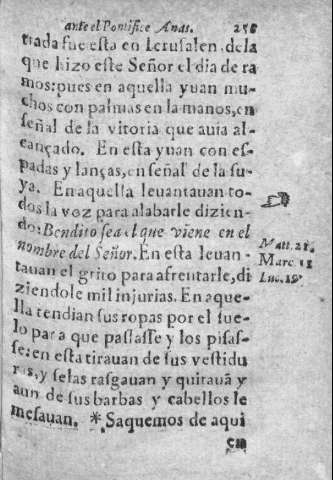 ante el Pontifice Anas. 256
trada fue esta en Ierusalen, de la
que hizo este Señor el dia de ra
mos: pues en aquella yuan mu-
chos con palmas en la manos, en
señal de la vitoria que auia al-
cançado. En esta yuan con es-
padas y lanças, en señal de la su-
ya. En aquella leuantauan to-
dos la voz para alabarle dizien-
do: Bendito sea el que viene en el
nombre del Señor. En esta leuan-
tauan el grito para afrentarle, di
ziendole mil injurias. En aque-
lla tendian sus ropas por el sue-
lo para que passasse y los pisas-
se: en esta tirauan de sus vestidu
ras, y selas rasgauan y quitauã y
aun de sus barbas y cabellos le
mesauan. * Saquemos de aqui
cm
Matt. 21.
Marc. 11
Luc. 19.